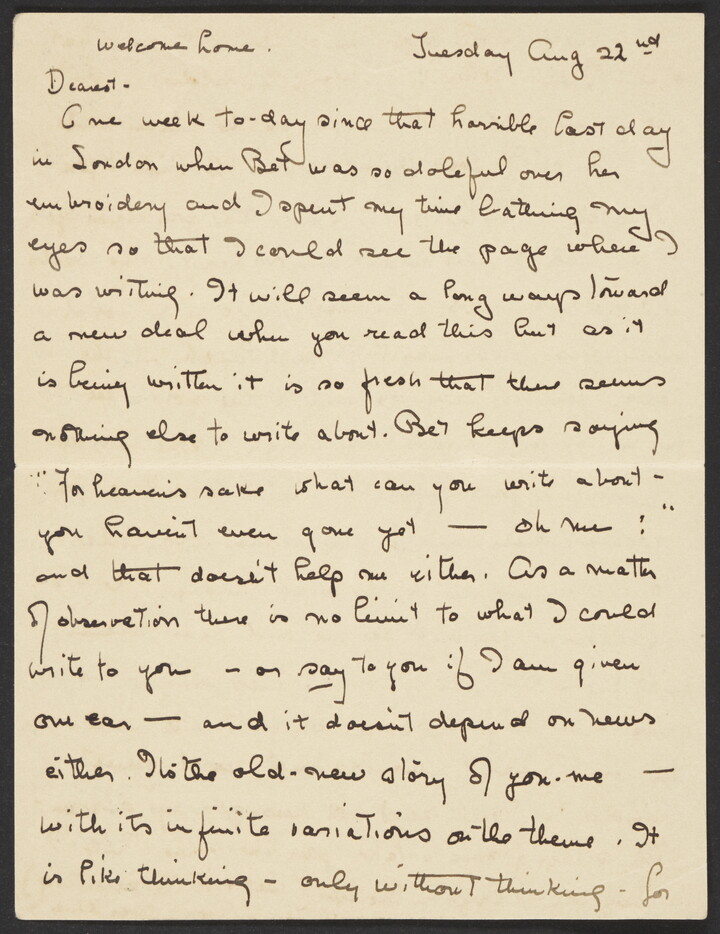 Welcome home.
Tuesday Aug 22nd
Dearest-
One week to-day since that horrible last day
in London when Bet was so doleful over her
embroidery and I spent my time bathing my
eyes so that I could see the page where I
was writing. It will seem a long ways toward
a new deal when you read this but as it
is being written it is so fresh that there seems
nothing else to write about. Bet keeps saying
"For heaven's sake what can you write about-
you haven't even gone yet — oh me!"
and that doesn't help me either. As a matter
of observation there is no limit to what I could
write to you - or say to you if I am given
one ear — and it doesn't depend on news
either. It is the old-new story of you-me —
with its infinite variations on the theme. It
is like thinking - only without thinking - for